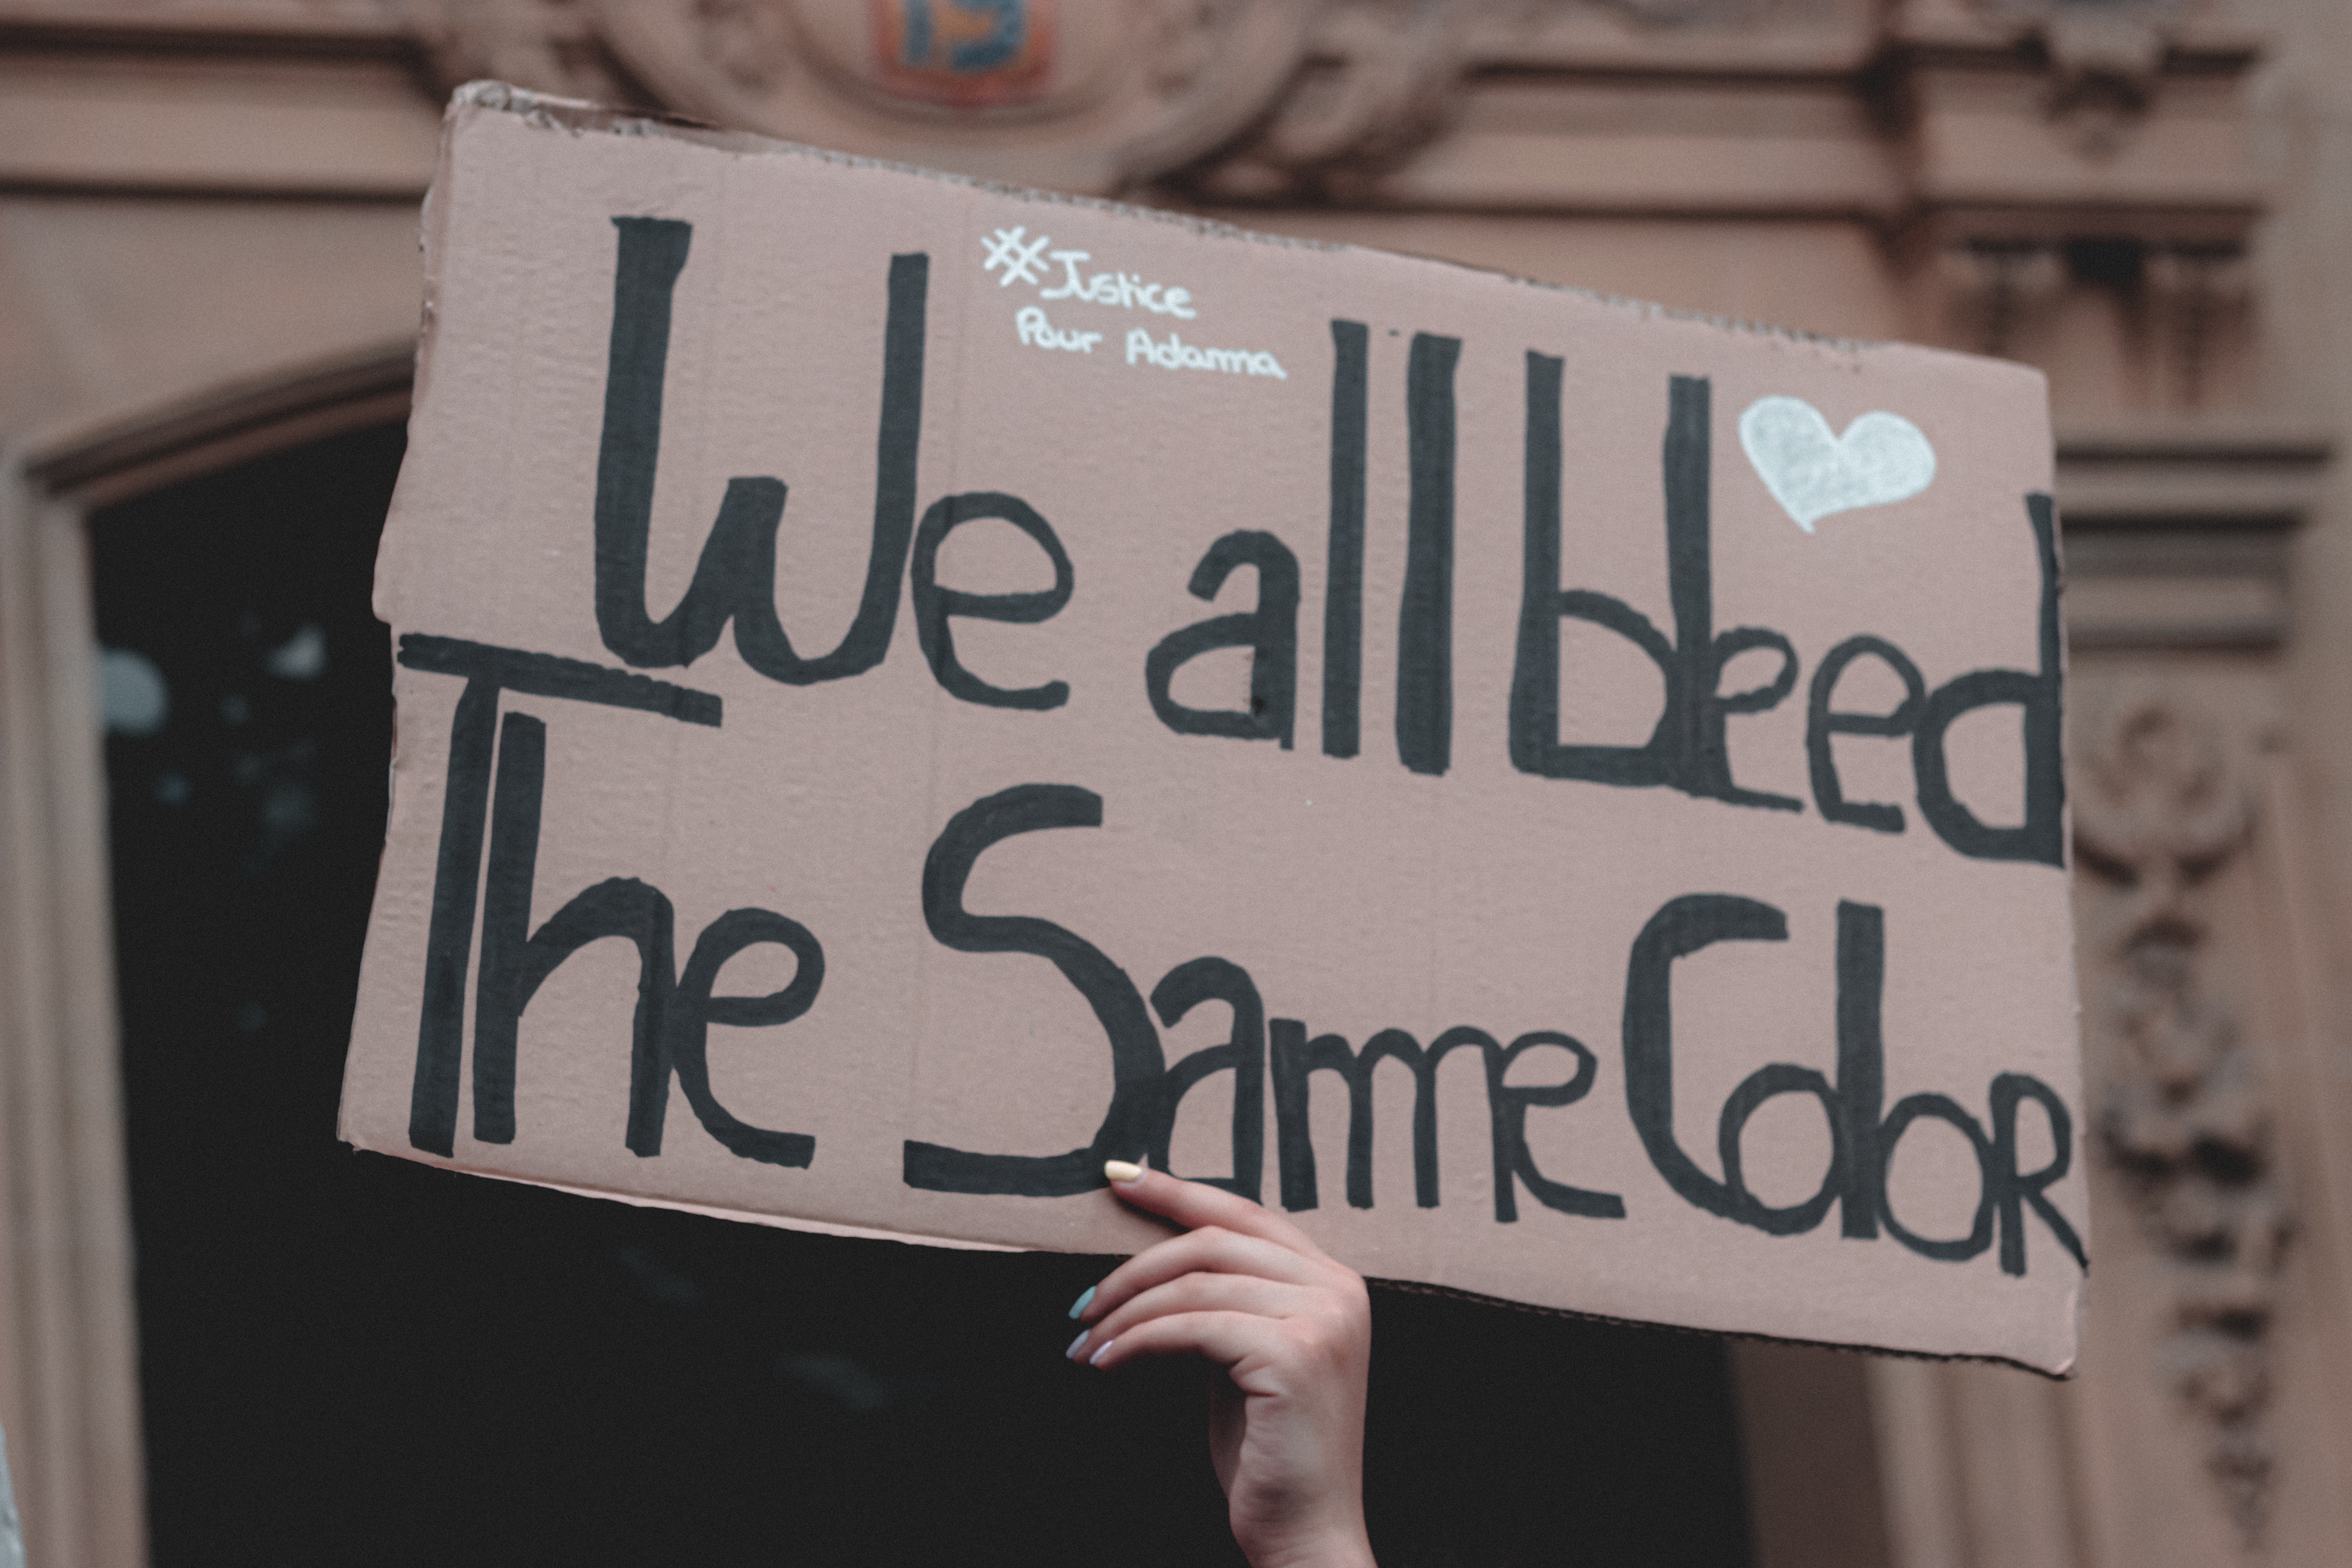 #Justice
Pour Adama
We all bleed
The Same ColoR
19